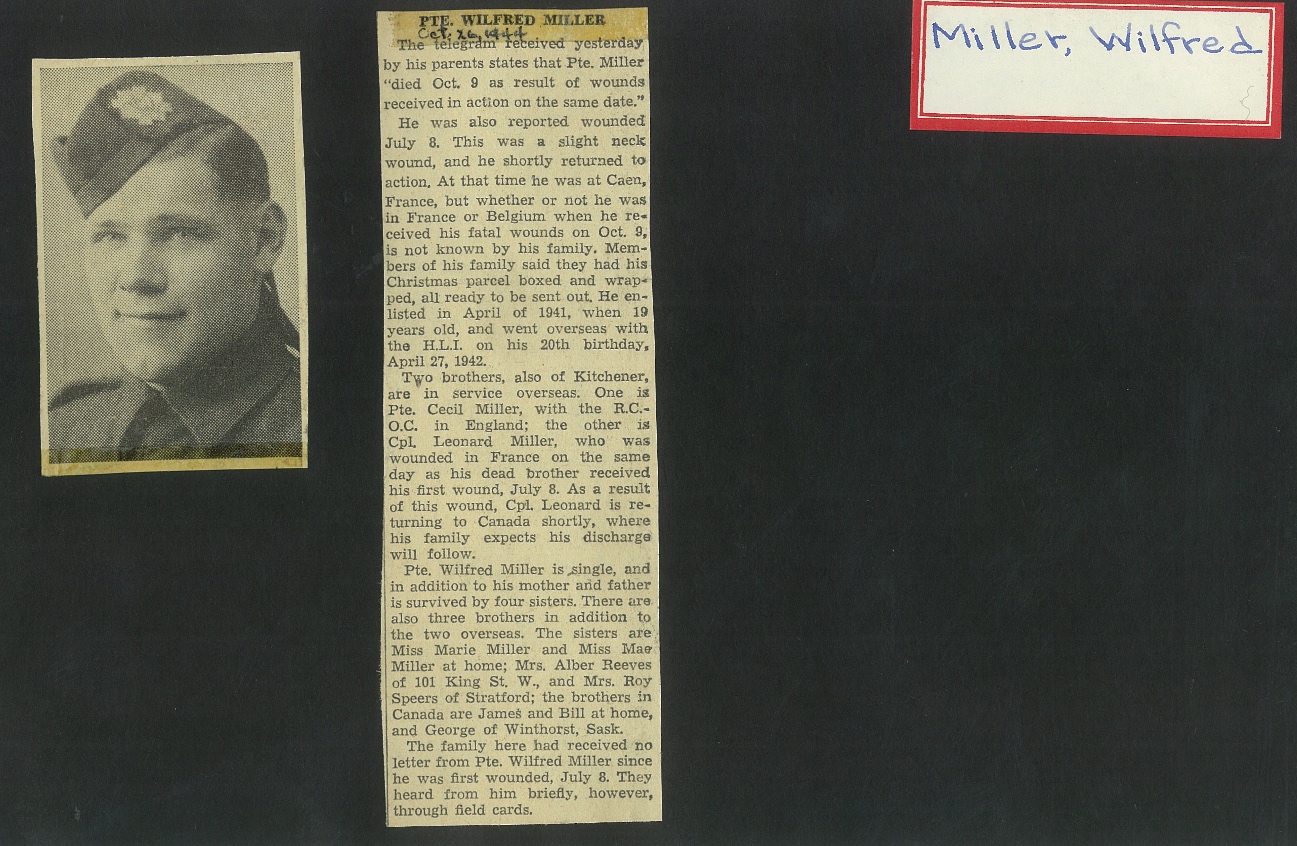 PTE. WILFRED MILLER
Oct. 26, 1944
The telegram received yesterday
by his parents states that Pte. Miller
"died Oct. 9 as result of wounds
received in action on the same date."
He was also reported wounded
July 8. This was a slight neck
wound, and he shortly returned to
action. At that time he was at Caen,
France, but whether or not he was
in France or Belgium when he re-
ceived his fatal wounds on Oct. 9,
is not known by his family. Mem-
bers of his family said they had his
Christmas parcel boxed and wrap-
ped, all ready to be sent out. He en-
listed in April of 1941, when 19
years old, and went overseas with
the H.L.I. on his 20th birthday,
April 27, 1942.
Two brothers, also of Kitchener,
are in service overseas. One is
Pte. Cecil Miller, with the R.C.-
O.C. in England; the other is
Cpl. Leonard Miller, who was
wounded in France on the same
day as his dead brother received
his first wound, July 8. As a result
of this wound, Cpl. Leonard is re-
turning to Canada shortly, where
his family expects his discharge
will follow.
Pte. Wilfred Miller is single, and
in addition to his mother and father
is survived by four sisters. There are
also three brothers in addition to
the two overseas. The sisters are
Miss Marie Miller and Miss Mae
Miller at home; Mrs. Alber Reeves
of 101 King St. W., and Mrs. Roy
Speers of Stratford; the brothers in
Canada are James and Bill at home,
and George of Winthorst, Sask.
The family here had received no
letter from Pte. Wilfred Miller since
he was first wounded, July 8. They
heard from him briefly, however,
through field cards.
Miller, Wilfred